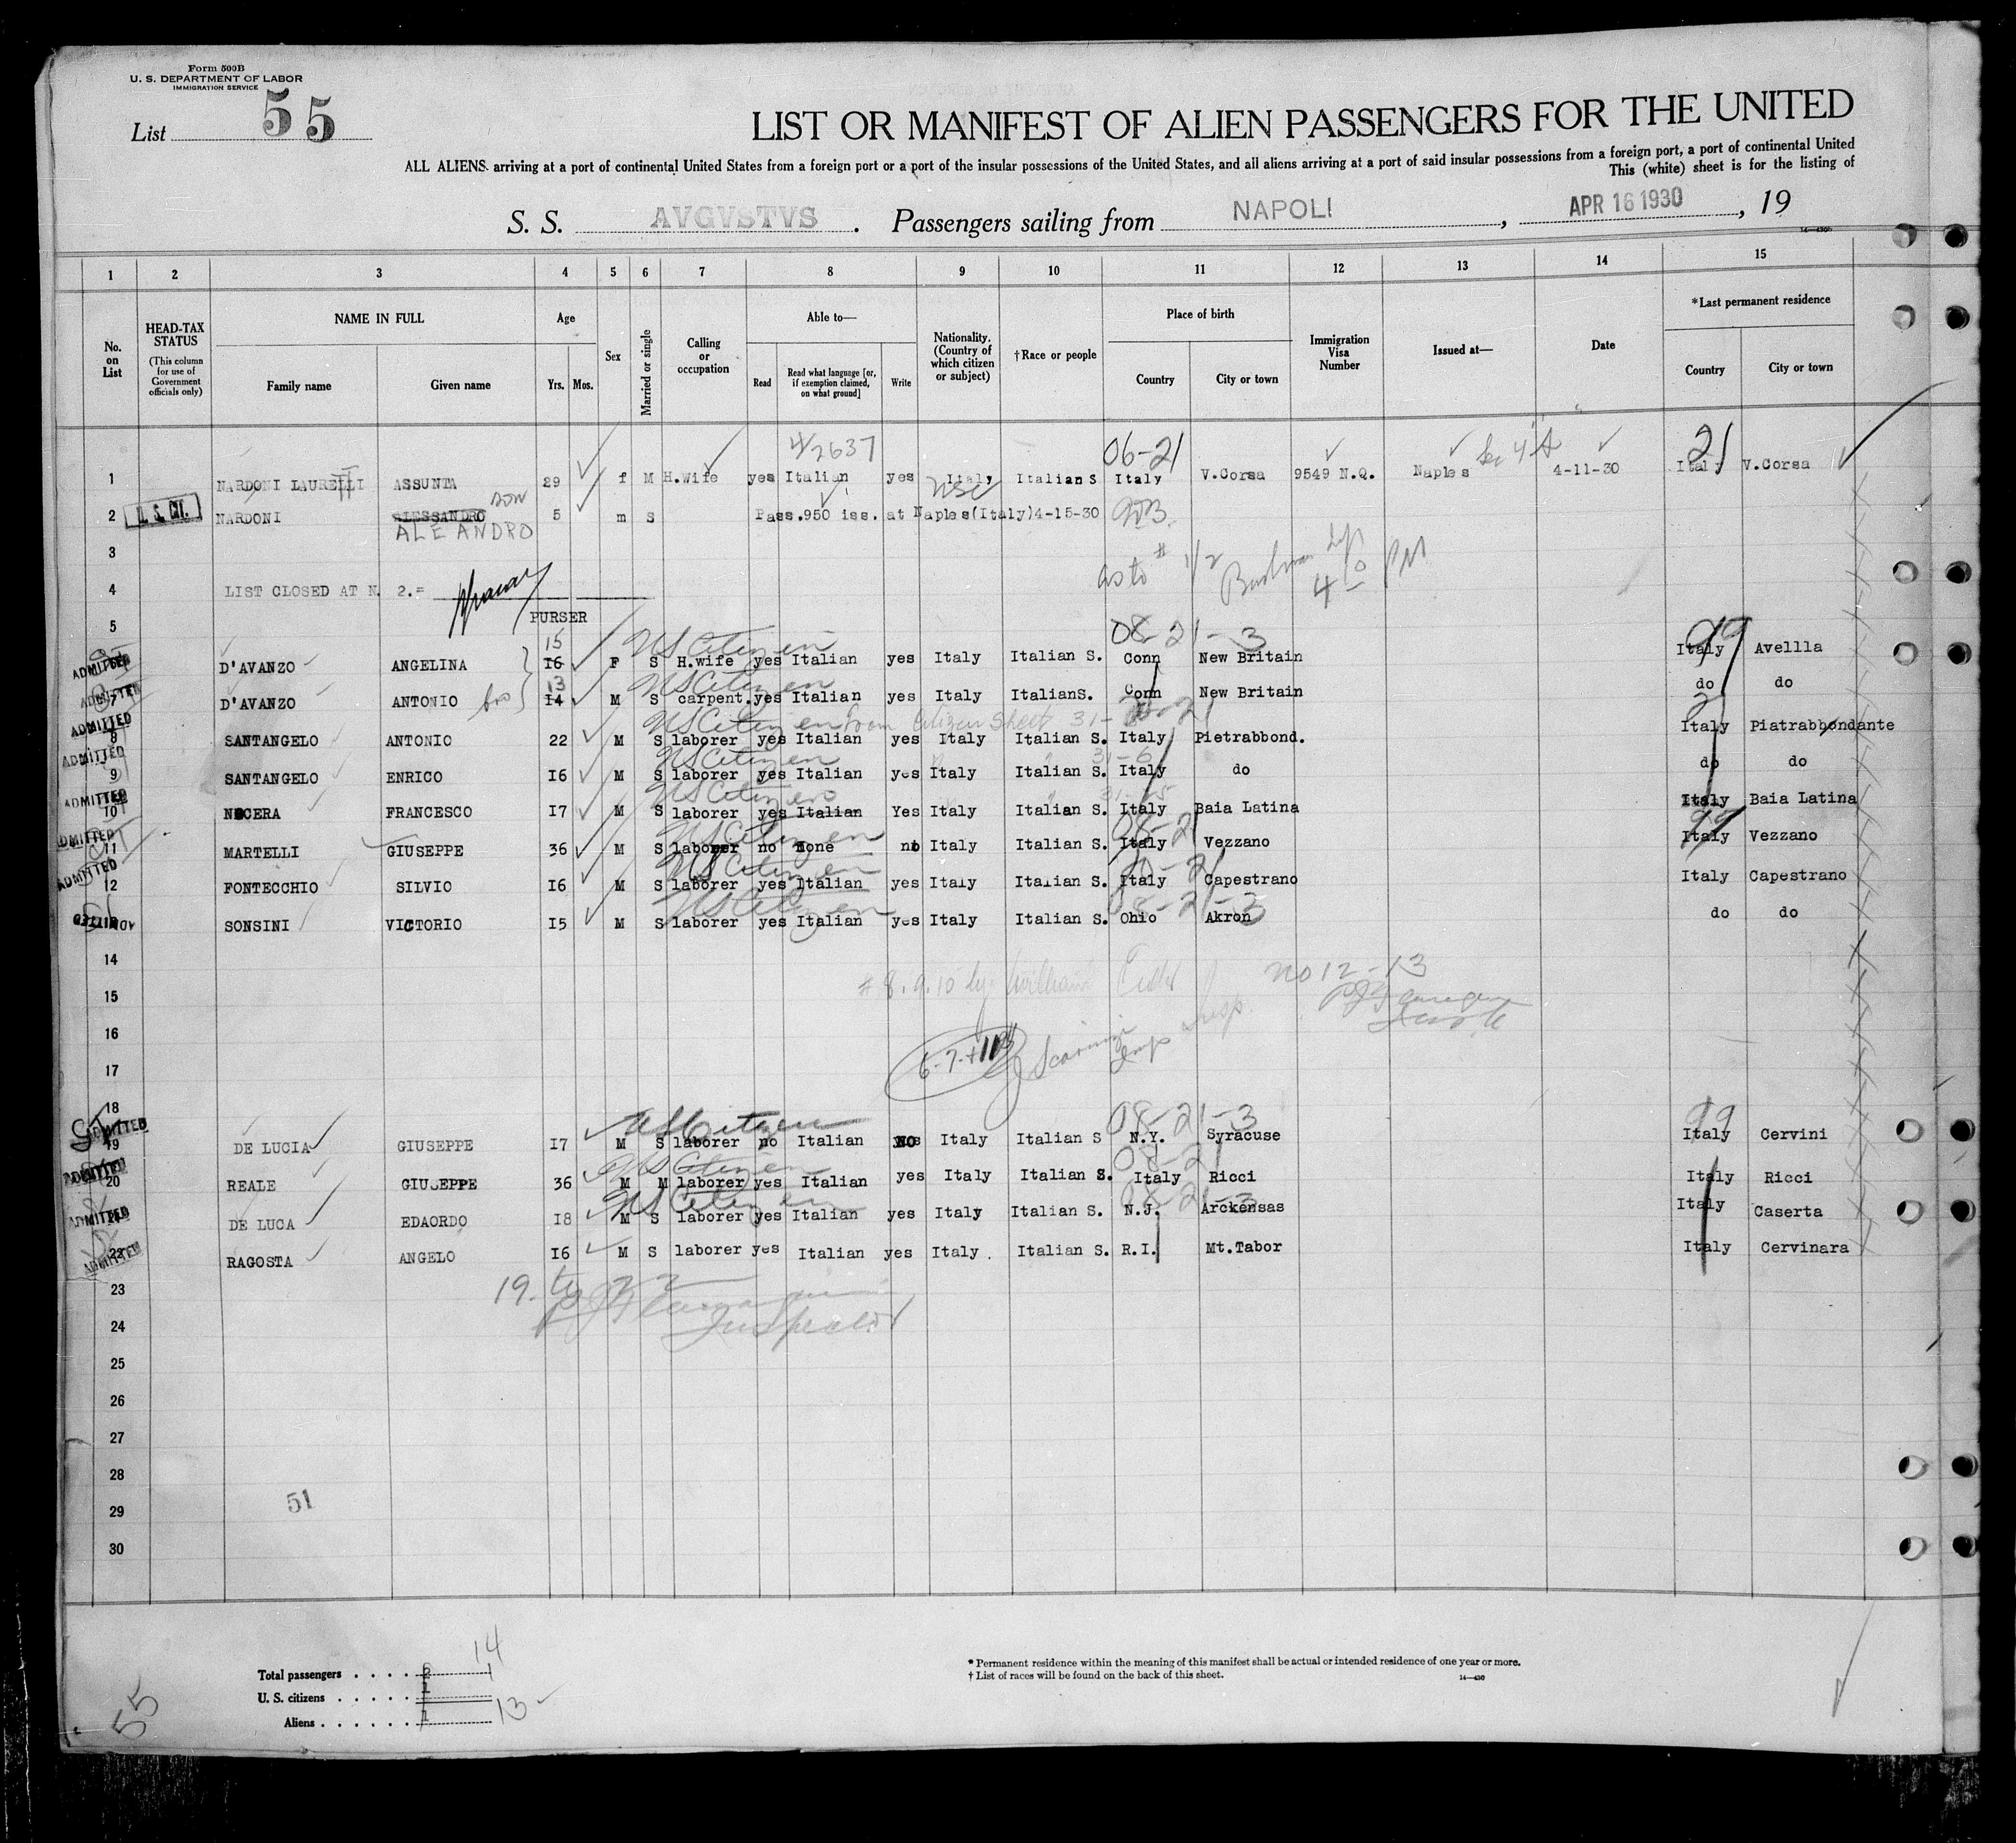 Form 500B
U. S. DEPARTMENT OF LABOR
IMMIGRATION SERVICE
List 55
LIST OR MANIFEST OF ALIEN PASSENGERS FOR THE UNITED
ALL ALIENS. arriving at a port of continental United States from a foreign port or a port of the insular possessions of the United States, and all aliens arriving at a port of said insular possessions from a foreign port, a port of continental United
This (white) sheet is for the listing of
S. S. AVGVSTVS. Passengers sailing from NAPOLI, APR 16 1930, 19
14—430b
1 2 3 4 5 6 7 8 9 10 11 12 13 14 15
No. on List
HEAD-TAX STATUS (This column for use of Government officials only)
NAME IN FULL Family name Given name
Age Yrs. Mos.
Sex
Married or single
Calling or occupation
Able to— Read Read what language [or, if exemption claimed, on what ground] Write
Nationality. (Country of which citizen or subject)
†Race or people
Place of birth Country City or town
Immigration Visa Number
Issued at—
Date
*Last permanent residence Country City or town
4/2637 06-21 Sec 4 A 21
1 NARDONI LAURELLI II ASSUNTA 29 f M H.wife yes Italian yes Italy Italian S Italy V.Corsa 9549 N.Q. Naples 4-11-30 Italy V.Corsa
son USC
2 U.S. CIT. NARDONI ALESSANDRO 5 m S Pass.950 iss. at Naples(Italy)4-15-30
ALEANDRO
3
as to # 1/2
4 LIST CLOSED AT N. 2.=
PURSER
5
15 US Citizen 08-21-3 99
ADMITTED D'AVANZO ANGELINA 16 F S H.wife yes Italian yes Italy Italian S. Conn New Britain Italy Avellla
13 US Citizen
ADMITTED 7 D'AVANZO ANTONIO bro 14 M S carpent. yes Italian yes Italy ItalianS. Conn New Britain do do
US Citizen from Citizen Sheet 31-
ADMITTED 8 SANTANGELO ANTONIO 22 M S laborer yes Italian yes Italy Italian S. Italy Pietrabbond. Italy Piatrabbondante
US Citizen 31-6
ADMITTED 9 SANTANGELO ENRICO 16 M S laborer yes Italian yes Italy Italian S. Italy do do do
US Citizen
ADMITTED 10 NOCERA FRANCESCO 17 M S laborer yes Italian Yes Italy Italian S. Italy Baia Latina Italy Baia Latina
US Citizen 08-21 99
ADMITTED 11 MARTELLI GIUSEPPE 36 M S laborer no none no Italy Italian S. Italy Vezzano Italy Vezzano
US Citizen
ADMITTED 12 FONTECCHIO SILVIO 16 M S laborer yes Italian yes Italy Italian S. Italy Capestrano Italy Capestrano
US Citizen 08-21-3
ADMITTED SONSINI VICTORIO 15 M S laborer yes Italian yes Italy Italian S. Ohio Akron do do
14
# 8.9.10 by no 12-13
15
16
6-7-+11
17
18
US Citizen 08-21-3 99
ADMITTED 19 DE LUCIA GIUSEPPE 17 M S laborer no Italian NO Italy Italian S N.Y. Syracuse Italy Cervini
US Citizen 08-21
ADMITTED 20 REALE GIUSEPPE 36 M M laborer yes Italian yes Italy Italian S. Italy Ricci Italy Ricci
US Citizen 08-21-3
ADMITTED DE LUCA EDAORDO 18 M S laborer yes Italian yes Italy Italian S. N.J. Arckensas Italy Caserta
ADMITTED 22 RAGOSTA ANGELO 16 M S laborer yes Italian yes Italy. Italian S. R.I. Mt.Tabor Italy Cervinara
23 19. to 22
24 Inspector
25
26
27
28
29 51
30
14
Total passengers 2 1
U. S. citizens 1
Aliens 1 13
55
* Permanent residence within the meaning of this manifest shall be actual or intended residence of one year or more.
† List of races will be found on the back of this sheet.
14—430